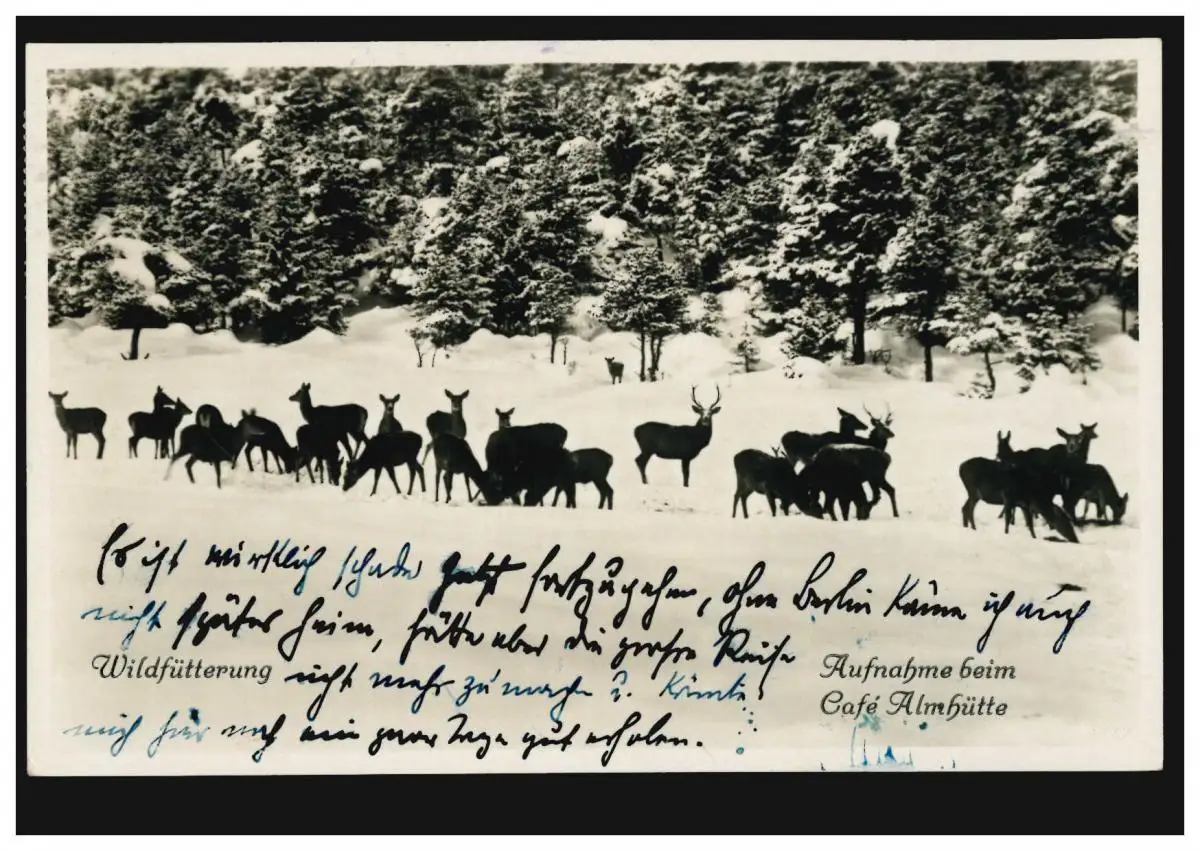 Es ist wirklich schade jetzt fortzugehen, ohne Berlin käme ich auch
nicht später heim, hätte aber die große Reise
nicht mehr zu machen u. könnte
mich hier noch ein paar Tage gut erholen.
Wildfütterung
Aufnahme beim
Café Almhütte